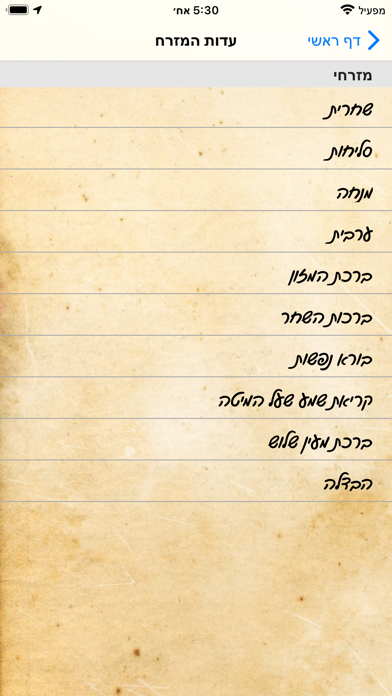 מפעיל 5:30 אח׳
דף ראשי עדות המזרח
מזרחי
שחרית
סליחות
מנחה
ערבית
ברכת המזון
ברכות השחר
בורא נפשות
קריאת שמע שעל המיטה
ברכת מעין שלוש
הבדלה